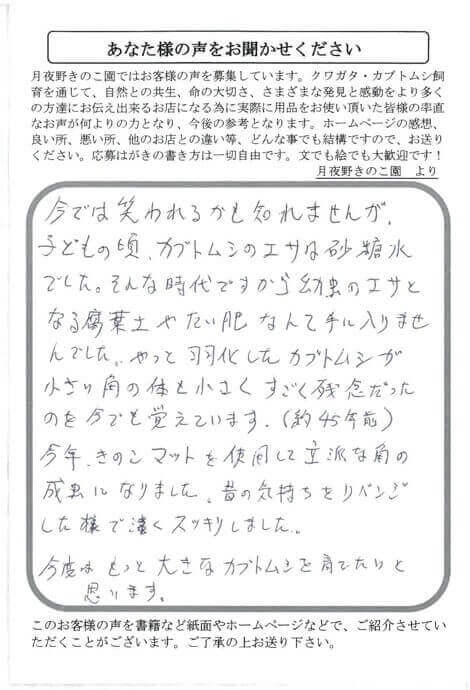 あなた様の声をお聞かせください
月夜野きのこ園ではお客様の声を募集しています。クワガタ・カブトムシ飼
育を通じて、自然との共生、命の大切さ、さまざまな発見と感動をより多く
の方達にお伝え出来るお店になる為に実際に用品をお使い頂いた皆様の率直
なお声が何よりの力となり、今後の参考となります。ホームページの感想、
良い所、悪い所、他のお店との違い等、どんな事でも結構ですので、お送り
ください。応募はがきの書き方は一切自由です。文でも絵でも大歓迎です！
月夜野きのこ園　より
今では笑われるかも知れませんが、
子どもの頃、カブトムシのエサは砂糖水
でした。そんな時代ですから幼虫のエサと
なる腐葉土やたい肥なんて手に入りませ
んでした。やっと羽化したカブトムシが
小さい角の体も小さくすごく残念だった
のを今でも覚えています。(約45年前)
今年、きのこマットを使用して立派な角の
成虫になりました。昔の気持ちをリベンジ
した様で凄くスッキリしました。
今度はもっと大きなカブトムシを育てたいと
思います。
このお客様の声を書籍など紙面やホームページなどで、ご紹介させてい
ただくことがございます。ご了承の上お送り下さい。